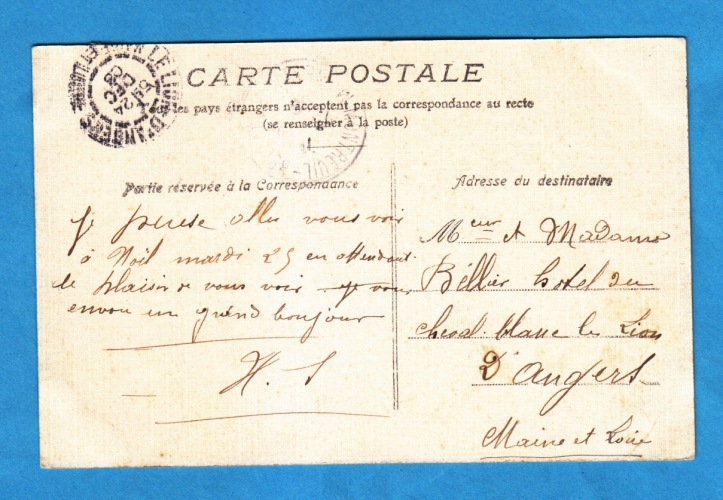 CARTE POSTALE
les pays étrangers n'acceptent pas la correspondance au recto
(se renseigner à la poste)
Partie réservée à la Correspondance
Adresse du destinataire
je pense aller vous voir
à Noil mardi 25 en attendant
le plaisir de vous voir je vous
envou un grand bonjour
H. S
Meur et Madame
Béllier hotel du
cheval blanc le Lion
D'angers
Maine et Loire
LE LION D'ANGERS
MONTREUIL